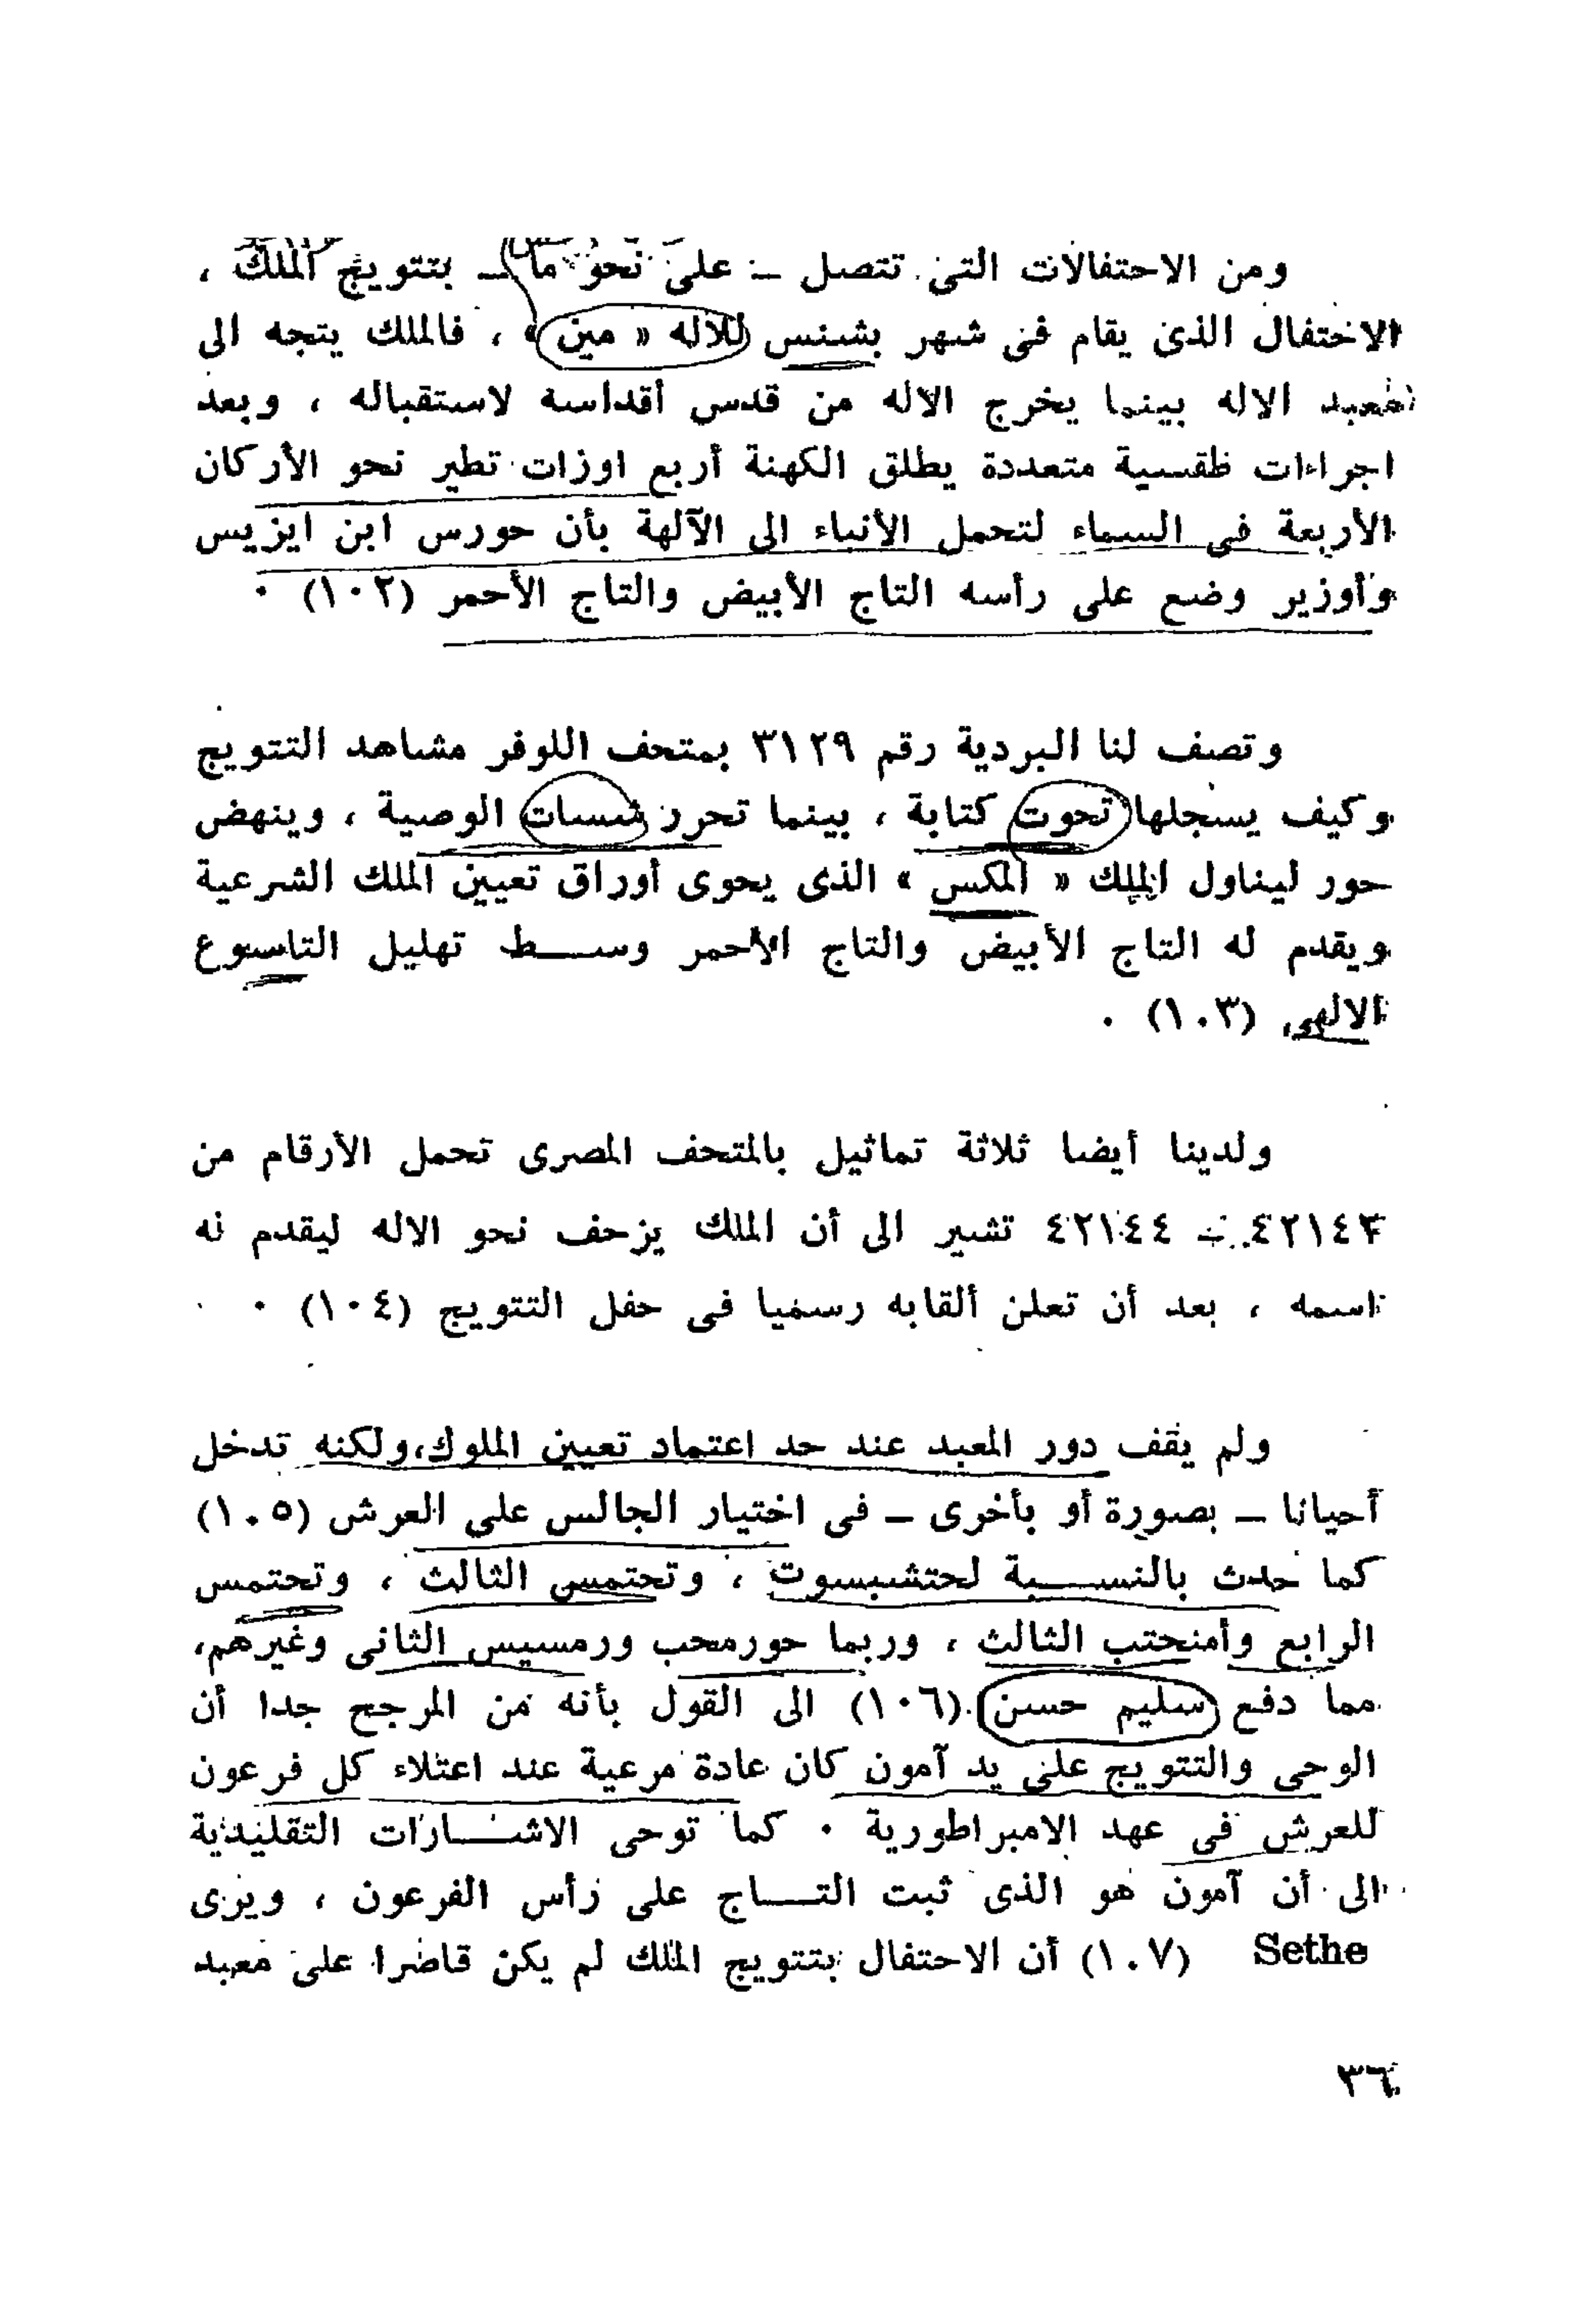 ومن الاحتفالات التى تتصل ــ على نحو ما ــ بتتويج الملك ،
الاحتفال الذى يقام فى شهر بشنس للاله « مين » ، فالملك يتجه الى
معبد الاله بينما يخرج الاله من قدس أقداسه لاستقباله ، وبعد
اجراءات طقسية متعددة يطلق الكهنة أربع اوزات تطير نحو الأركان
الأربعة فى السماء لتحمل الأنباء الى الآلهة بأن حورس ابن ايزيس
وأوزير وضع على رأسه التاج الأبيض والتاج الأحمر (١٠٢) ٠
وتصف لنا البردية رقم ٣١٢٩ بمتحف اللوفر مشاهد التتويج
وكيف يسجلها تحوت كتابة ، بينما تحرر شسات الوصية ، وينهض
حور ليناول الملك « المكس » الذى يحوى أوراق تعيين الملك الشرعية
ويقدم له التاج الأبيض والتاج الأحمر وســـط تهليل التاسوع
الالهى (١٠٣) ٠
ولدينا أيضا ثلاثة تماثيل بالمتحف المصرى تحمل الأرقام من
ـ ٤٢١٤٤ تشير الى أن الملك يزحف نحو الاله ليقدم له
اسمه ، بعد أن تعلن ألقابه رسميا فى حفل التتويج (١٠٤) ٠
ولم يقف دور المعبد عند حد اعتماد تعيين الملوك،ولكنه تدخل
أحيانا ــ بصورة أو بأخرى ــ فى اختيار الجالس على العرش (١٠٥)
كما حدث بالنســـبة لحتشبسوت ، وتحتمس الثالث ، وتحتمس
الرابع وأمنحتب الثالث ، وربما حورمحب ورمسيس الثانى وغيرهم،
مما دفع سليم حسن (١٠٦) الى القول بأنه من المرجح جدا أن
الوحى والتتويج على يد آمون كان عادة مرعية عند اعتلاء كل فرعون
للعرش فى عهد الامبراطورية ٠ كما توحى الاشـــارات التقليدية
الى أن آمون هو الذى ثبت التـــاج على رأس الفرعون ، ويرى
Sethe (١٠٧) أن الاحتفال بتتويج الملك لم يكن قاصرا على معبد
٣٦